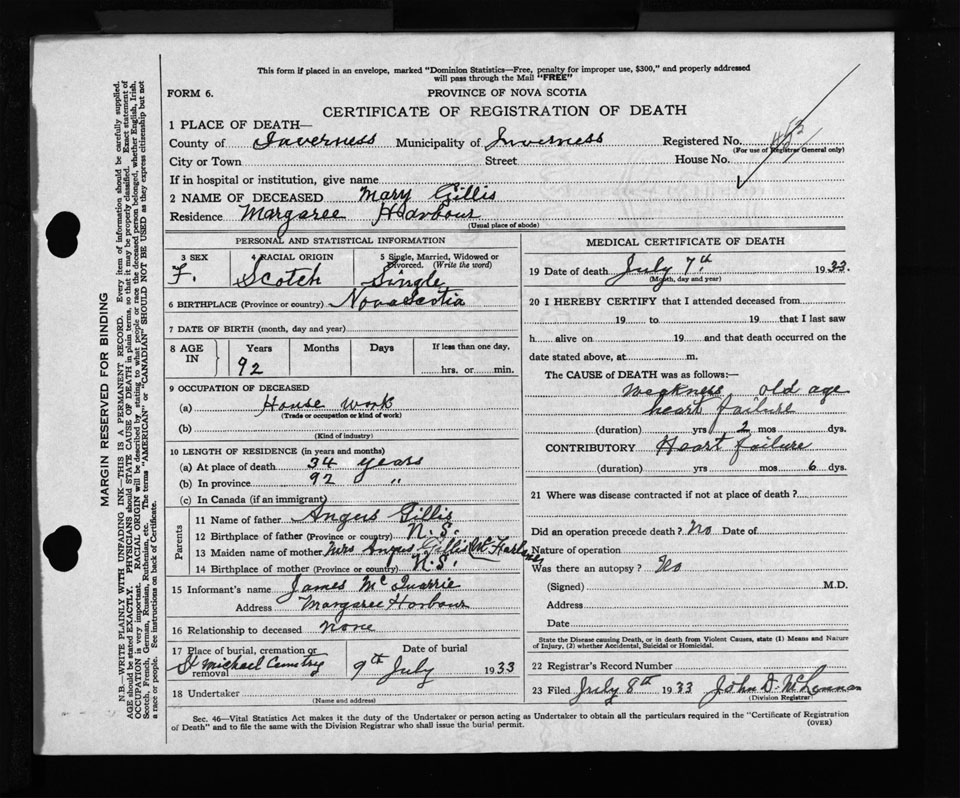 This form if placed in an envelope, marked "Dominion Statistics—Free, penalty for improper use, $300," and properly addressed
will pass through the Mail "FREE"
FORM 6.
PROVINCE OF NOVA SCOTIA
CERTIFICATE OF REGISTRATION OF DEATH
1 PLACE OF DEATH—
County of Inverness Municipality of Inverness Registered No.
(For use of Registrar General only)
City or Town Street House No.
If in hospital or institution, give name
2 NAME OF DECEASED Mary Gillis
Residence Margaree Harbour
(Usual place of abode)
PERSONAL AND STATISTICAL INFORMATION
3 SEX 4 RACIAL ORIGIN 5 Single, Married, Widowed or
Divorced. (Write the word)
F. Scotch Single
6 BIRTHPLACE (Province or country) Nova Scotia
7 DATE OF BIRTH (month, day and year)
8 AGE IN Years Months Days If less than one day,
92 hrs. or min.
9 OCCUPATION OF DECEASED
(a) House work
(Trade or occupation or kind of work)
(b)
(Kind of industry)
10 LENGTH OF RESIDENCE (in years and months)
(a) At place of death 34 years
(b) In province 92 "
(c) In Canada (if an immigrant)
Parents
11 Name of father Angus Gillis
12 Birthplace of father (Province or country) N.S.
13 Maiden name of mother Mrs Angus Gillis
14 Birthplace of mother (Province or country) N.S.
15 Informant's name James McQuarrie
Address Margaree Harbour
16 Relationship to deceased none
17 Place of burial, cremation or removal Date of burial
St Michael Cemetry 9th July 1933
18 Undertaker
(Name and address)
MEDICAL CERTIFICATE OF DEATH
19 Date of death July 7th 1933.
(Month, day and year)
20 I HEREBY CERTIFY that I attended deceased from
19 to 19 that I last saw
h alive on 19 and that death occurred on the
date stated above, at m.
The CAUSE of DEATH was as follows:—
Weakness old age
heart failure
(duration) yrs 2 mos dys.
CONTRIBUTORY Heart failure
(duration) yrs mos 6 dys.
21 Where was disease contracted if not at place of death?
Did an operation precede death? No Date of
Nature of operation
Was there an autopsy? No
(Signed) M.D.
Address
Date
State the Disease causing Death, or in death from Violent Causes, state (1) Means and Nature
of Injury, (2) whether Accidental, Suicidal or Homicidal.
22 Registrar's Record Number
23 Filed July 8th 1933 John D. McLennan
(Division Registrar)
Sec. 46—Vital Statistics Act makes it the duty of the Undertaker or person acting as Undertaker to obtain all the particulars required in the "Certificate of Registration
of Death" and to file the same with the Division Registrar who shall issue the burial permit. (OVER)
MARGIN RESERVED FOR BINDING
N.B.—WRITE PLAINLY WITH UNFADING INK—THIS IS A PERMANENT RECORD. Every item of information should be carefully supplied.
AGE should be stated EXACTLY. PHYSICIANS should STATE CAUSE OF DEATH in plain terms, so that it may be properly classified. Exact statement of
OCCUPATION is very important. RACIAL ORIGIN will be described by stating to what people or race the deceased person belonged, whether English, Irish,
Scotch, French, German, Russian, Ruthenian, etc. The terms "AMERICAN" or "CANADIAN" SHOULD NOT BE USED as they express citizenship but not
a race or people. See instructions on back of Certificate.